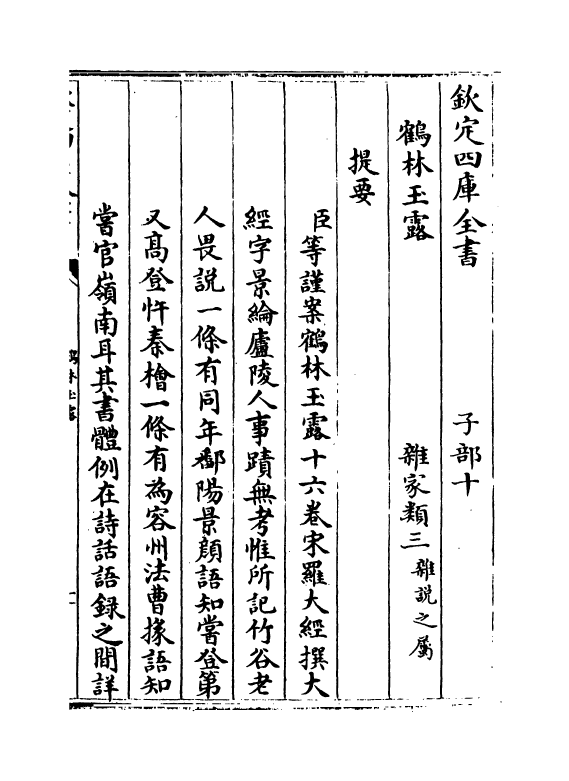 欽定四庫全書
鶴林玉露 子部十 雜家類三雜説之屬
提要
臣等謹案鶴林玉露十六卷宋羅大經撰大
經字景綸廬陵人事蹟無考惟所記竹谷老
人畏説一條有同年鄱陽景顔語知嘗登第
又髙登忤秦檜一條有為容州法曹掾語知
嘗官嶺南耳其書體例在詩話語録之間詳